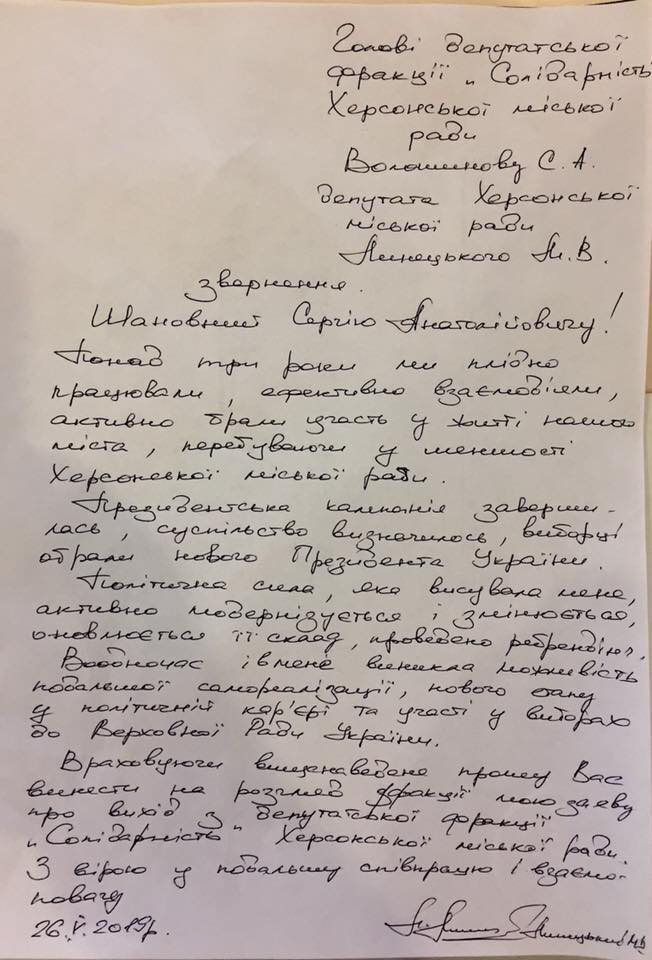 Голові депутатської
фракції „Солідарність
Херсонської міської
ради
Волошинову С. А.
депутата Херсонської
міської ради
Линецького М. В.
звернення.
Шановний Сергію Анатолійовичу!
Понад три роки ми плідно
працювали, ефективно взаємодіяли,
активно брали участь у житті нашого
міста, перебуваючи у меншості
Херсонської міської ради.
Президентська кампанія заверши-
лась, суспільство визначилось, виборці
обрали нового Президента України.
Політична сила, яка висувала мене,
активно модернізується і змінюється,
оновлюється її склад, проведено ребрендінг.
Водночас і в мене виникла можливість
подальшої самореалізації, нового етапу
у політичній кар'єрі та участі у виборах
до Верховної Ради України.
Враховуючи вищенаведене прошу Вас
винести на розгляд фракції мою заяву
про вихід з депутатської фракції
„Солідарність" Херсонської міської ради.
З вірою у подальшу співпрацю і взаємо-
повагу
26.V.2019р.